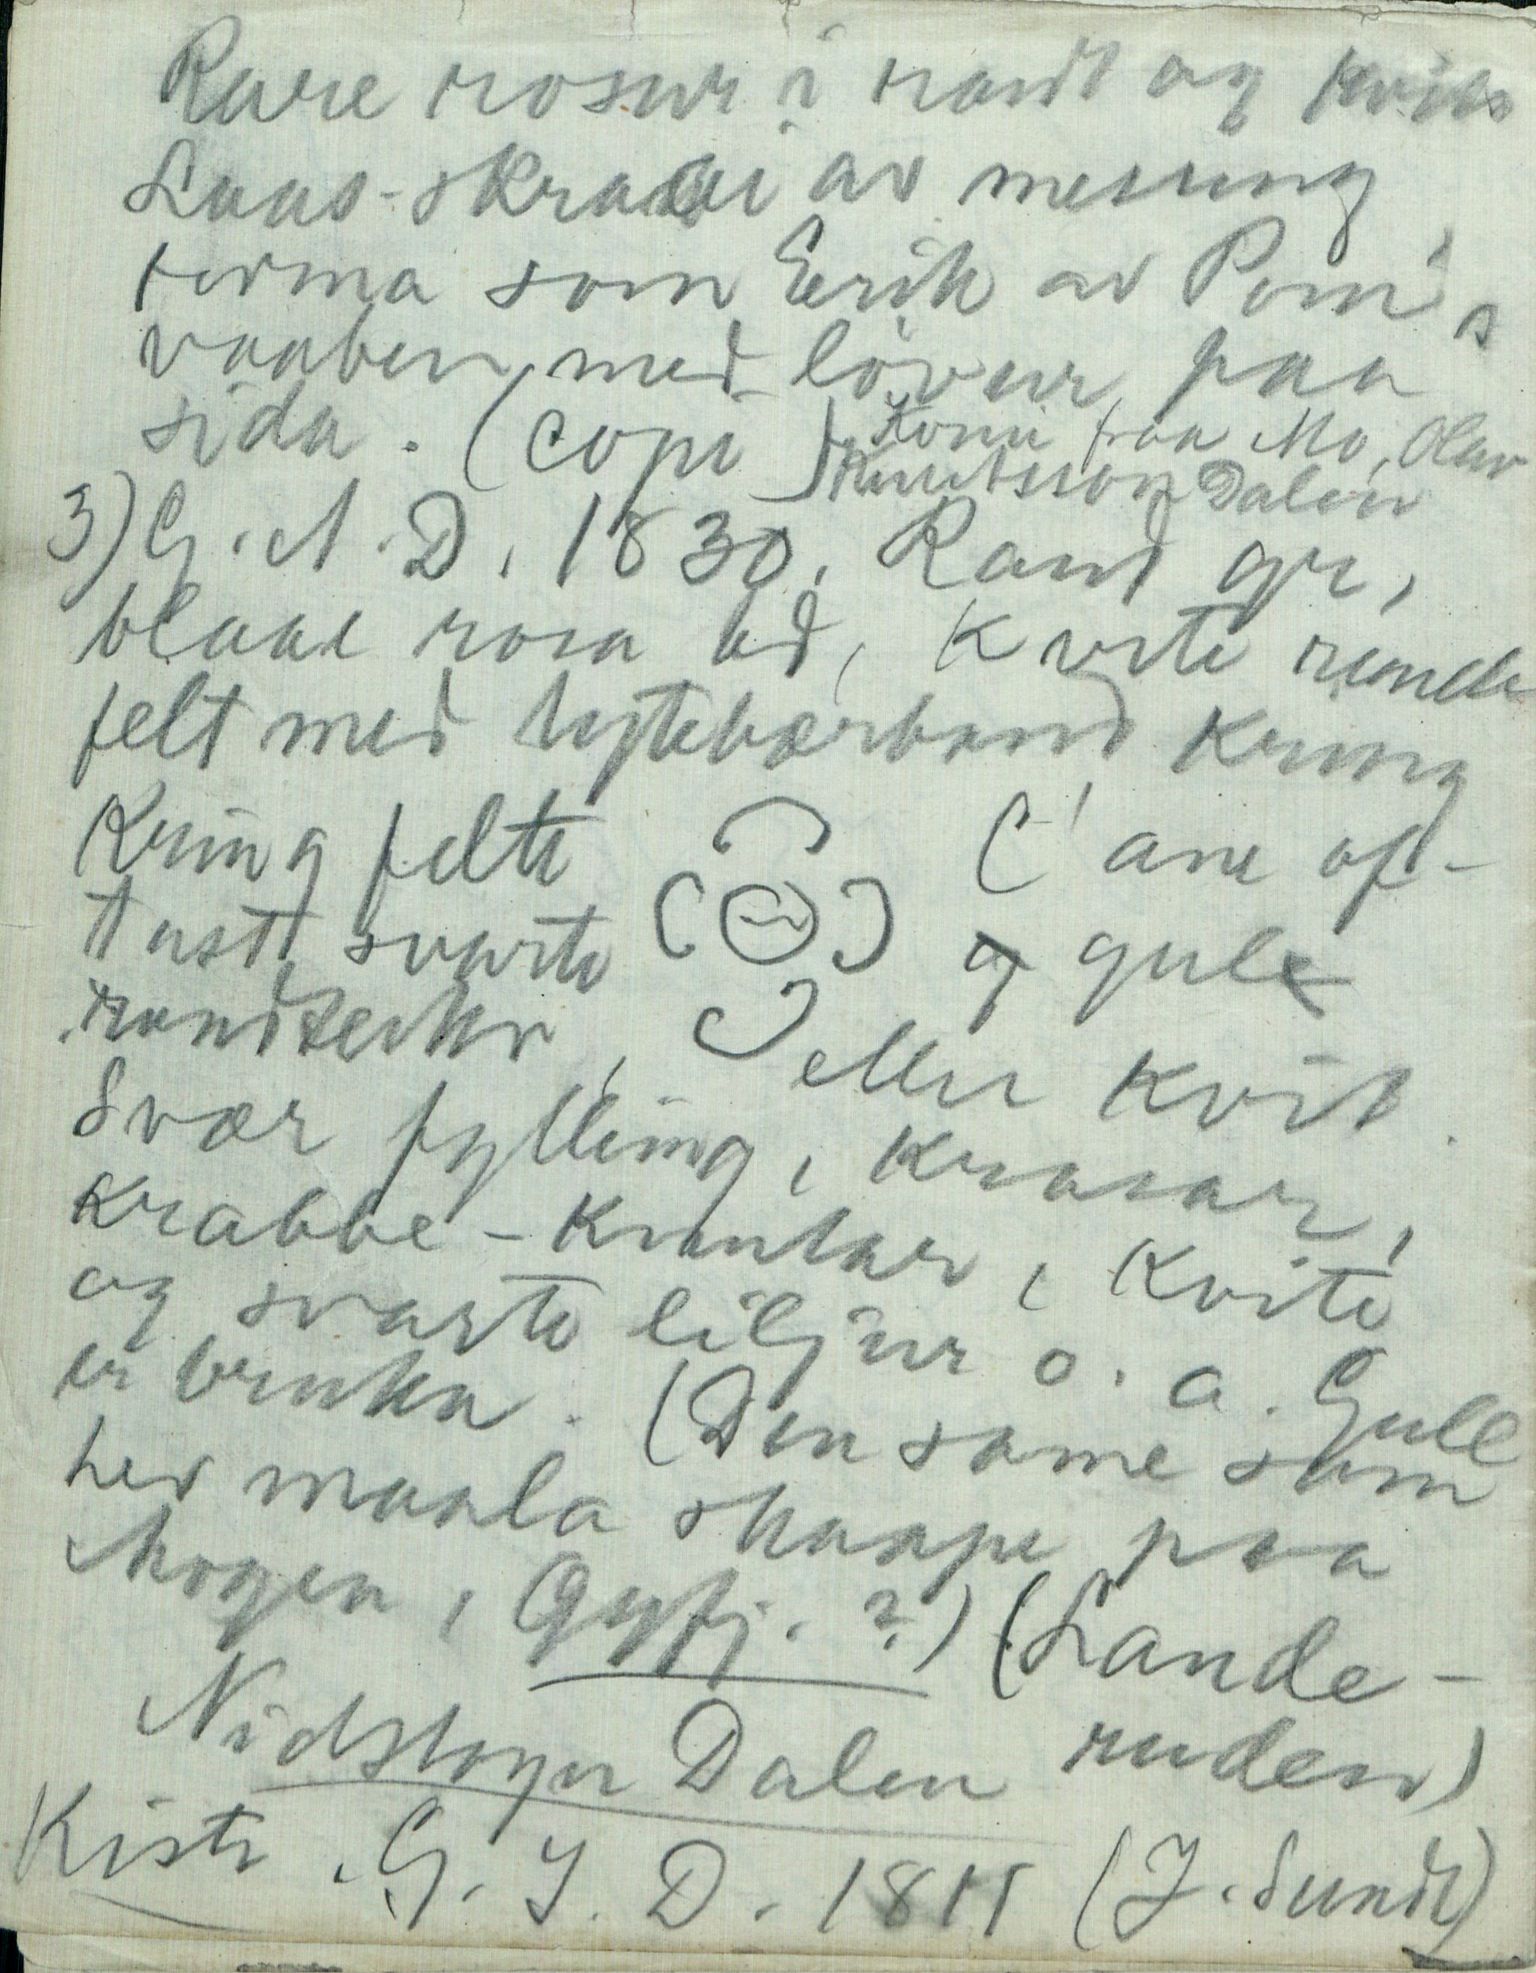 Rare rosur i raudt og kvitt
Laas-skradei av messing,
forma som Erik av Pom's
vaaben, med lövur paa
sida. (copi) Kona paa Mo, Olav
Knutsson Dalen
3) G. A. D. 1830. Raud gr,
blaae rosa ud, Kvite runde
felt med hytebærband kring
Kring felte C ane of-
tast, svarte og gule
randterker, eller kvit.
Svær fylling, krusar,
krabbe-kruntar, kvite
og svarte liljur o. a. Gull
er bruka. (Den same som
hev maala skaape paa
Mogen, Gøyfj. ?) (Lande-
ruden)
Nidstoger Dalen
Kiste. G. J. D. 1811 (J. Sundt)